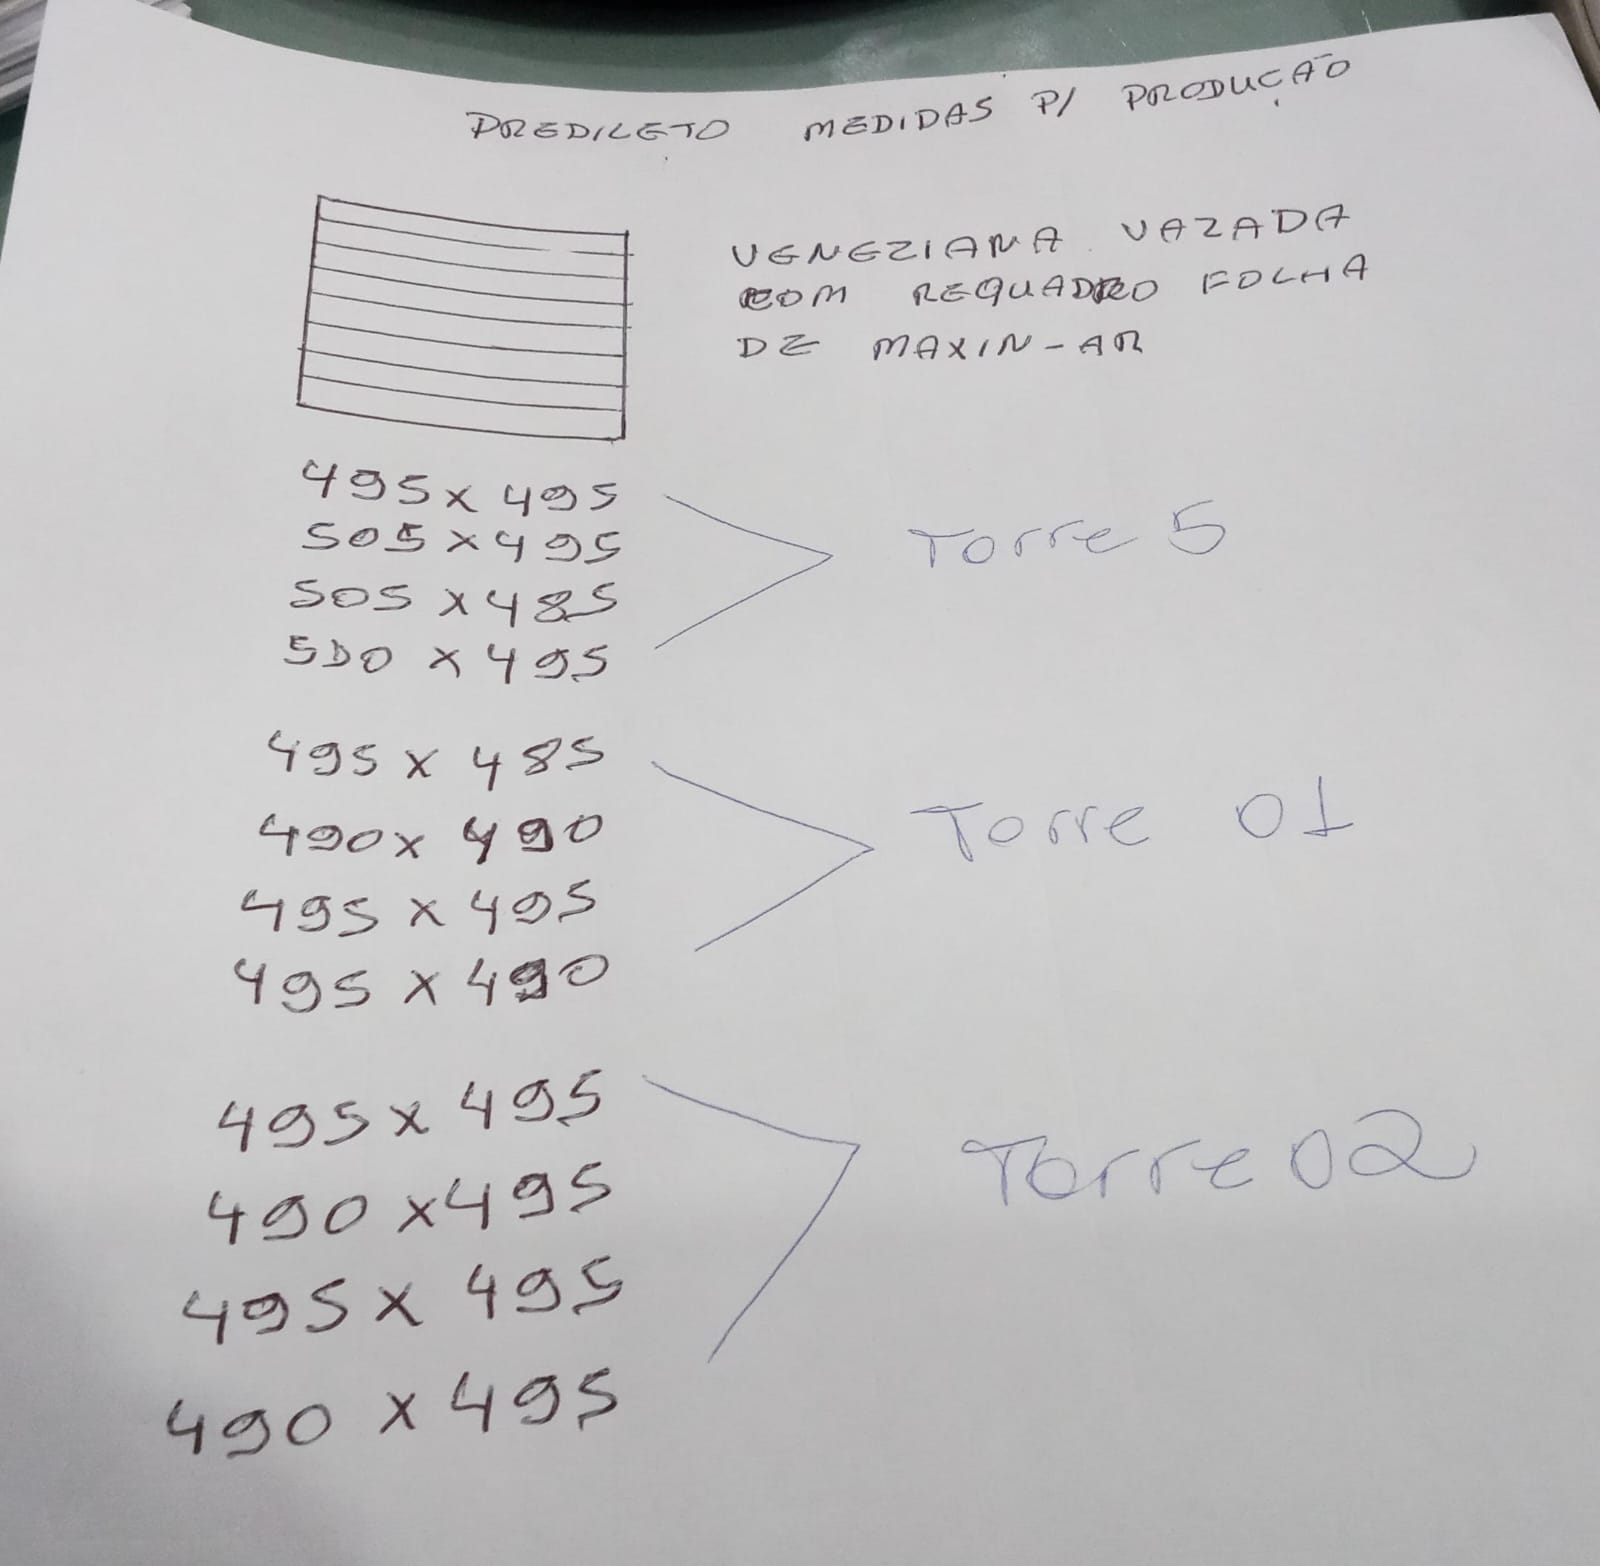 PREDILETO MEDIDAS P/ PRODUÇÃO
VENEZIANA VAZADA
COM REQUADRO FOLHA
DE MAXIN-AR
495 x 495
505 x 495
505 x 485
500 x 495
Torre 5
495 x 485
490 x 490
495 x 495
495 x 490
Torre 01
495 x 495
490 x 495
495 x 495
490 x 495
Torre 02